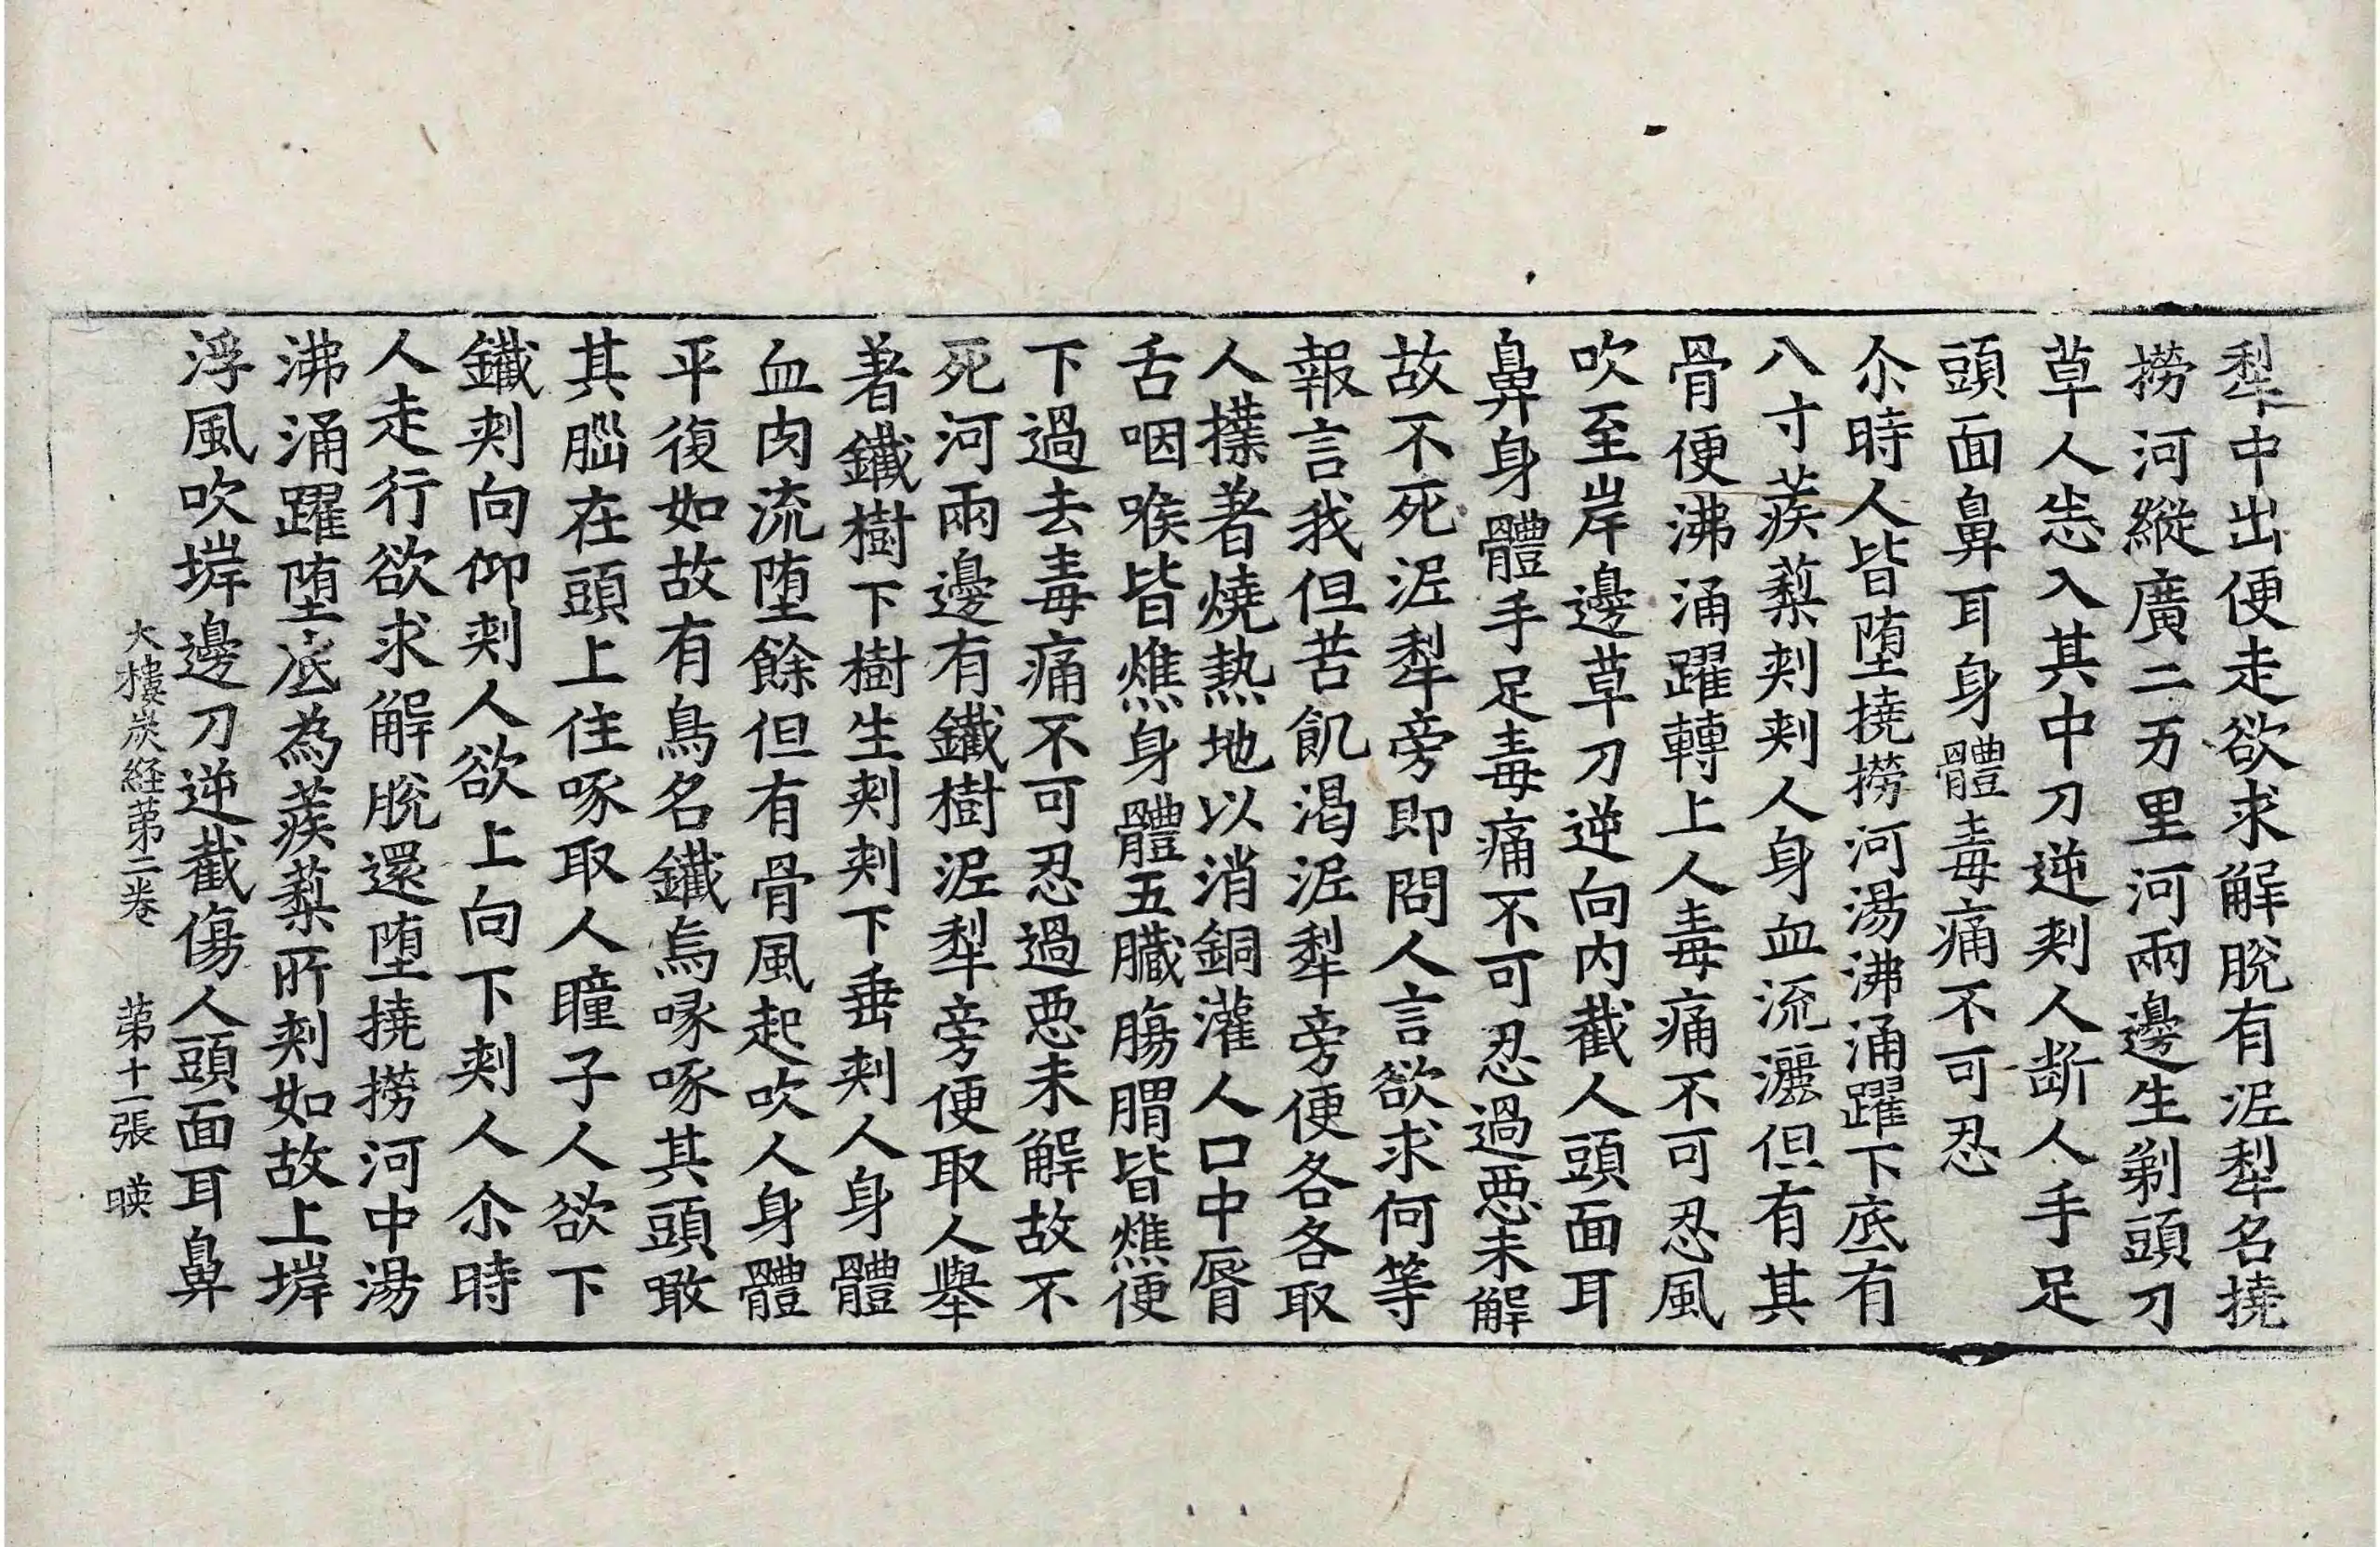 犁中出便走欲求解脫有泥犁名撓
撈河縱廣二万里河兩邊生剃頭刀
草人恙入其中刀逆刾人斷人手足
頭面鼻耳身體毒痛不可忍
尒時人皆堕撓撈河湯沸涌躍下底有
八寸蒺蔾刾刾人身血流灑但有其
骨便沸涌躍轉上人毒痛不可忍風
吹至岸邊草刀逆向内截人頭面耳
鼻身體手足毒痛不可忍過惡未解
故不死泥犁旁即問人言欲求何等
報言我但苦飢渴泥犁旁便各各取
人撲著燒熱地以消銅灌人口中脣
舌咽喉皆燋身體五臟腸胃皆燋便
下過去毒痛不可忍過惡未解故不
死河兩邊有鐵樹泥犁旁便取人舉
著鐵樹下樹生刾刾下垂刾人身體
血肉流堕餘但有骨風起吹人身體
平復如故有鳥名鐵烏喙啄其頭噉
其腦在頭上住啄取人瞳子人欲下
鐵刾向仰刾人欲上向下刾人尒時
人走行欲求解脫還堕撓撈河中湯
沸涌躍堕底為蒺蔾所刾如故上㙈
浮風吹㙈邊刀逆截傷人頭面耳鼻
大樓炭経苐二卷 苐十一張 暎